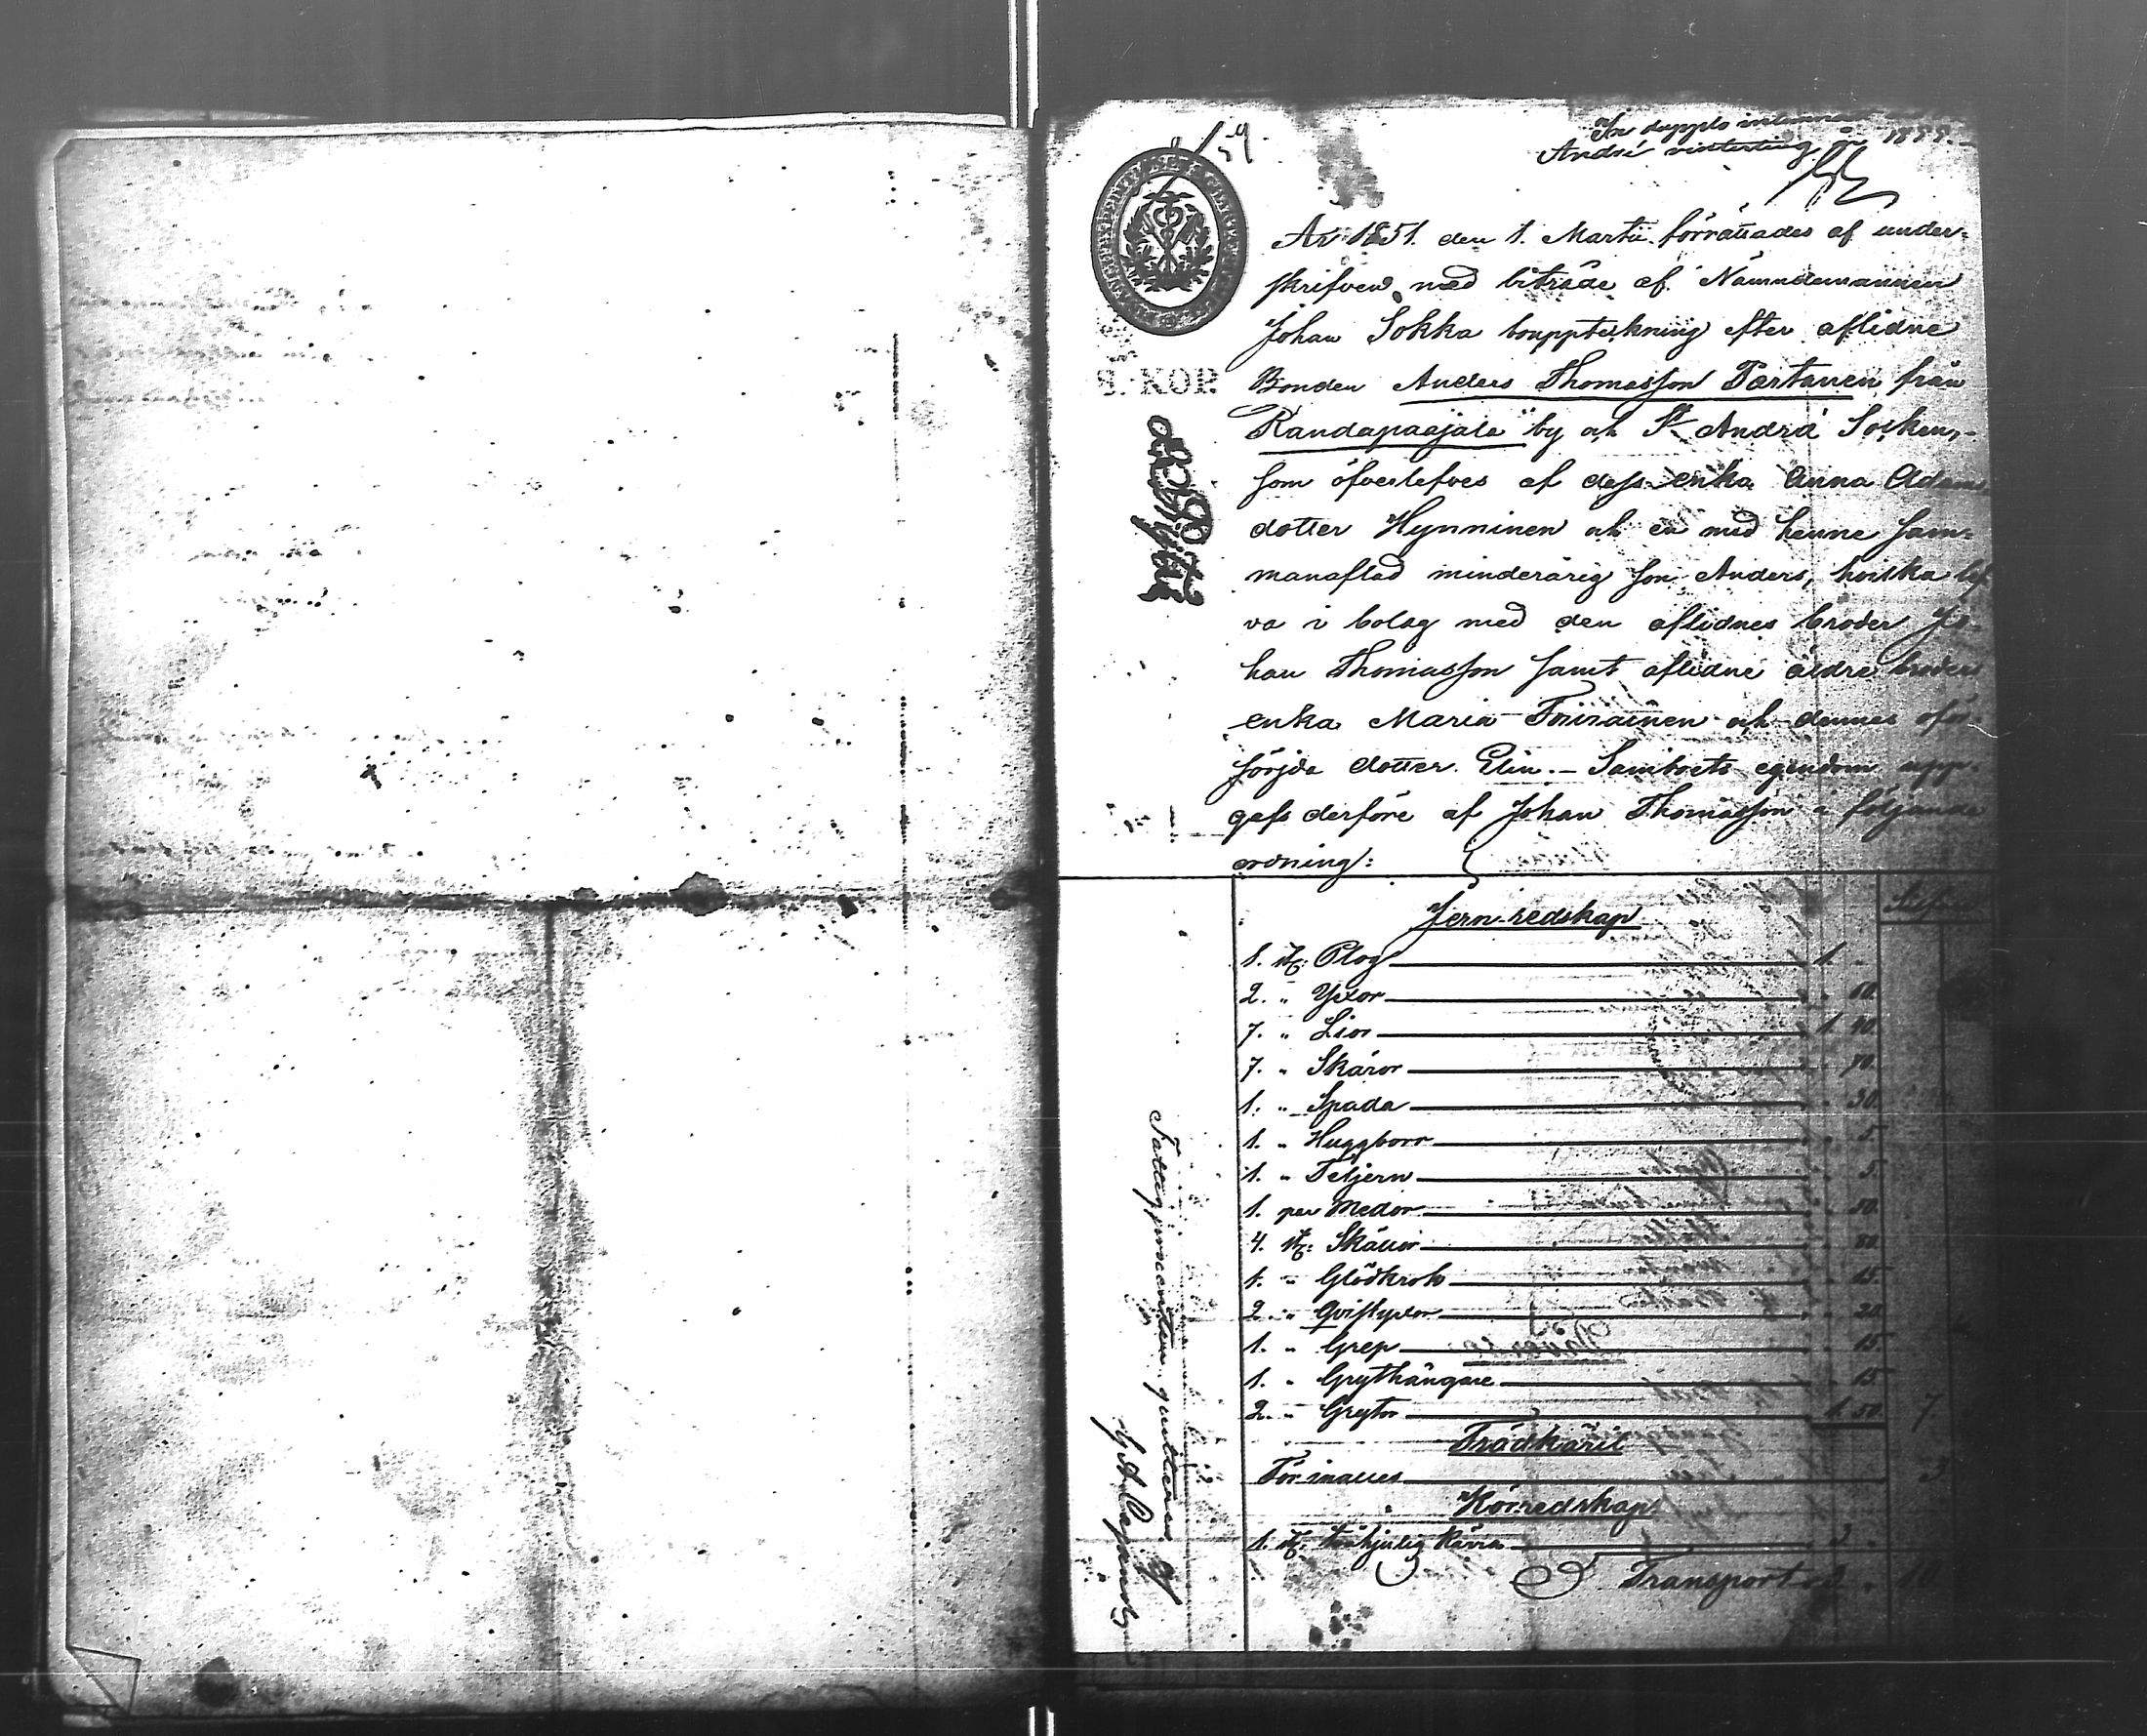 In duplo
André vinterting år 1877.
År 1851. den 1. Martii förrättades af under-
skrifven med biträde af Nämndemannen
Johan Sokka bouppteckning efter aflidne
Bonden Anders Thomasson Partanen från
Randapaajala by och St Andrä Socken,
som öfverlefves af dess enka Anna Adams
dotter Hynninen och en med henne sam-
manaflad minderårig son Anders, hvilka lef-
va i bolag med den aflidnes broder Jo-
han Thomasson samt aflidne äldre broders
enka Maria Toivainen och dennes oför-
sörjda dotter Elin. – Samboets egendom upp-
gafs derföre af Johan Thomasson i följande
ordning:
P. KOP.
Jern-redskap
1. st: Plog 1. "
2. " Yxor " 60.
7. " Lior 1. 40.
7. " Skäror " 70.
1. " Spada " 30.
1. " Huggborr " 5.
1. " Teljern " 5.
1. par Medor " 50.
4. st: " 80.
1. " Glödkrok " 15.
2. " Qvistyxor " 20.
1. " Grep " 15
1. " Grythängare " 15
2. " Grytor 1. 50. 7
Trädkäril
För inalles 3
Körredskap
1. st: tvåhjulig kärra 3
Transport 3 " 10